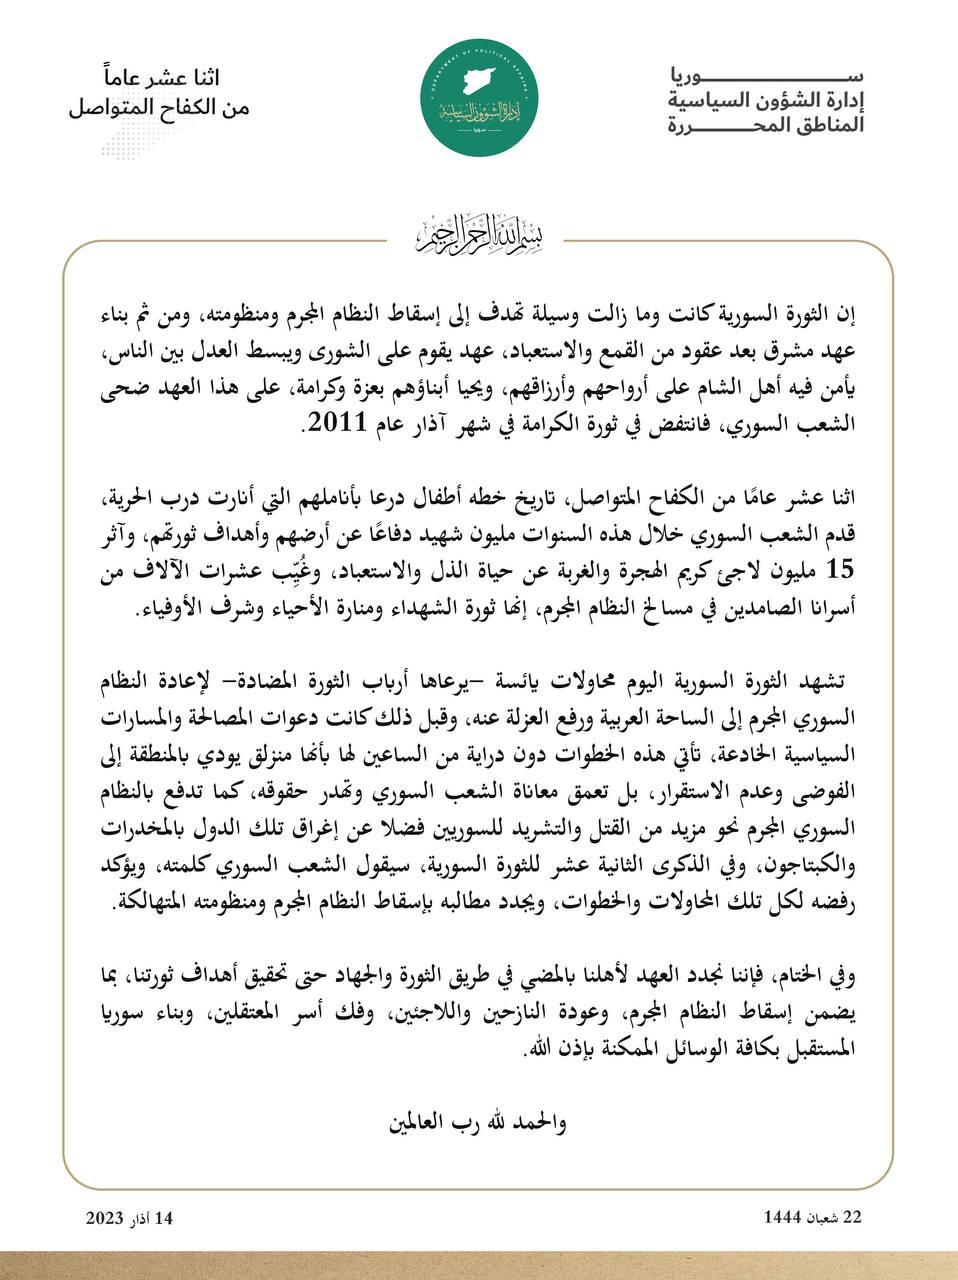 ســـــــــــــوريا
إدارة الشؤون السياسية
المناطق المحـــــــررة
DEPARTMENT OF POLITICAL AFFAIRS
إدارة الشؤون السياسية
سوريا
اثنا عشر عاماً
من الكفاح المتواصل
بسم الله الرحمن الرحيم
إن الثورة السورية كانت وما زالت وسيلة تهدف إلى إسقاط النظام المجرم ومنظومته، ومن ثم بناء
عهد مشرق بعد عقود من القمع والاستعباد، عهد يقوم على الشورى ويبسط العدل بين الناس،
يأمن فيه أهل الشام على أرواحهم وأرزاقهم، ويحيا أبناؤهم بعزة وكرامة، على هذا العهد ضحى
الشعب السوري، فانتفض في ثورة الكرامة في شهر آذار عام 2011.
اثنا عشر عامًا من الكفاح المتواصل، تاريخ خطه أطفال درعا بأناملهم التي أنارت درب الحرية،
قدم الشعب السوري خلال هذه السنوات مليون شهيد دفاعًا عن أرضهم وأهداف ثورتهم، وآثر
15 مليون لاجئ كريم الهجرة والغربة عن حياة الذل والاستعباد، وغُيِّب عشرات الآلاف من
أسرانا الصامدين في مسالخ النظام المجرم، إنها ثورة الشهداء ومنارة الأحياء وشرف الأوفياء.
تشهد الثورة السورية اليوم محاولات يائسة –يرعاها أرباب الثورة المضادة– لإعادة النظام
السوري المجرم إلى الساحة العربية ورفع العزلة عنه، وقبل ذلك كانت دعوات المصالحة والمسارات
السياسية الخادعة، تأتي هذه الخطوات دون دراية من الساعين لها بأنها منزلق يودي بالمنطقة إلى
الفوضى وعدم الاستقرار، بل تعمق معاناة الشعب السوري وتهدر حقوقه، كما تدفع بالنظام
السوري المجرم نحو مزيد من القتل والتشريد للسوريين فضلا عن إغراق تلك الدول بالمخدرات
والكبتاجون، وفي الذكرى الثانية عشر للثورة السورية، سيقول الشعب السوري كلمته، ويؤكد
رفضه لكل تلك المحاولات والخطوات، ويجدد مطالبه بإسقاط النظام المجرم ومنظومته المتهالكة.
وفي الختام، فإننا نجدد العهد لأهلنا بالمضي في طريق الثورة والجهاد حتى تحقيق أهداف ثورتنا، بما
يضمن إسقاط النظام المجرم، وعودة النازحين واللاجئين، وفك أسر المعتقلين، وبناء سوريا
المستقبل بكافة الوسائل الممكنة بإذن الله.
والحمد لله رب العالمين
22 شعبان 1444
14 أذار 2023